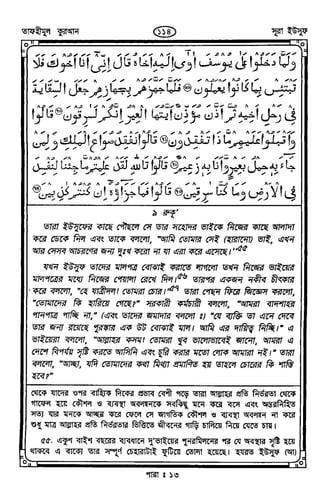 তাফহীমুল কুরআন
১১৪
সূরা ইউসুফ
وَلَمَّا دَخَلُوْا عَلٰى يُوْسُفَ اٰوٰٓى اِلَيْهِ اَخَاهُ قَالَ اِنِّيْٓ اَنَا اَخُوْكَ فَلَا
تَبْتَئِسْ بِمَا كَانُوْا يَعْمَلُوْنَ فَلَمَّا جَهَّزَهُمْ بِجَهَازِهِمْ جَعَلَ السِّقَايَةَ
فِيْ رَحْلِ اَخِيْهِ ثُمَّ اَذَّنَ مُؤَذِّنٌ اَيَّتُهَا الْعِيْرُ اِنَّكُمْ لَسٰرِقُوْنَ قَالُوْا
وَاَقْبَلُوْا عَلَيْهِمْ مَّاذَا تَفْقِدُوْنَ قَالُوْا نَفْقِدُ صُوَاعَ الْمَلِكِ وَلِمَنْ
جَآءَ بِهٖ حِمْلُ بَعِيْرٍ وَّاَنَا بِهٖ زَعِيْمٌ قَالُوْا تَاللّٰهِ لَقَدْ عَلِمْتُمْ مَّا جِئْنَا لِنُفْسِدَ
فِي الْاَرْضِ وَمَا كُنَّا سٰرِقِيْنَ قَالُوْا فَمَا جَزَآؤُهٗٓ اِنْ كُنْتُمْ كٰذِبِيْنَ
৯ রুকু'
তারা ইউসুফের কাছে পৌছলে সে তার সহোদর ভাইকে নিজের কাছে আলাদা
করে ডেকে নিল এবং তাকে বললো, "আমি তোমার সেই (হারানো) ভাই, এখন
আর সেসব আচরণের জন্য দুঃখ করো না যা এরা করে এসেছে।"৫৫
যখন ইউসুফ তাদের মালপত্র বোঝাই করাতে লাগলো তখন নিজের ভাইয়ের
মালপত্রের মধ্যে নিজের পেয়ালা রেখে দিল।৫৬ তারপর একজন নকীব চীৎকার
করে বললো, "হে যাত্রীদল! তোমরা চোর।"৫৭ তারা পেছন ফিরে জিজ্ঞেস করলো,
"তোমাদের কি হারিয়ে গেছে?" সরকারী কর্মচারী বললো, "আমরা বাদশাহর
পানপাত্র পাচ্ছি না," (এবং তাদের জমাদার বললো ঃ) "যে ব্যক্তি তা এনে দেবে
তার জন্য রয়েছে পুরস্কার এক উট বোঝাই মাল। আমি এর দায়িত্ব নিচ্ছি।" এ
ভাইয়েরা বললো, "আল্লাহর কসম! তোমরা খুব ভালোভাবেই জানো, আমরা এ
দেশে বিপর্যয় সৃষ্টি করতে আসিনি এবং চুরি করার মতো লোক আমরা নই।" তারা
বললো, "আচ্ছা, যদি তোমাদের কথা মিথ্যা প্রমাণিত হয় তাহলে চোরের কি শাস্তি
হবে?"
থেকে যাদের ওপর বাহ্যিক দিকের প্রভাব বেশী পড়ে তারা আল্লাহর প্রতি নির্ভরতা থেকে
গাফেল হয়ে কৌশল ও ব্যবস্থা অবলম্বনকে সবকিছু মনে করে বসে এবং অন্তরনিহিত
সত্য যার মনকে আচ্ছন্ন করে ফেলে সে জাগতিক কৌশল ও ব্যবস্থা অবলম্বন না করে
শুধু মাত্র আল্লাহর প্রতি নির্ভরতার ভিত্তিতে জীবনের গাড়ি চালিয়ে নিয়ে যেতে চায়।
৫৫. একুশ বাইশ বছরের ব্যবধানে দু'ভাইয়ের পুনরমিলনের পর যে অবস্থার সৃষ্টি হয়ে
থাকবে এ বাক্যে তার সম্পূর্ণ চেহারাটাই ফুটিয়ে তোলা হয়েছে। হযরত ইউসুফ (আ)
পারা ঃ ১৩